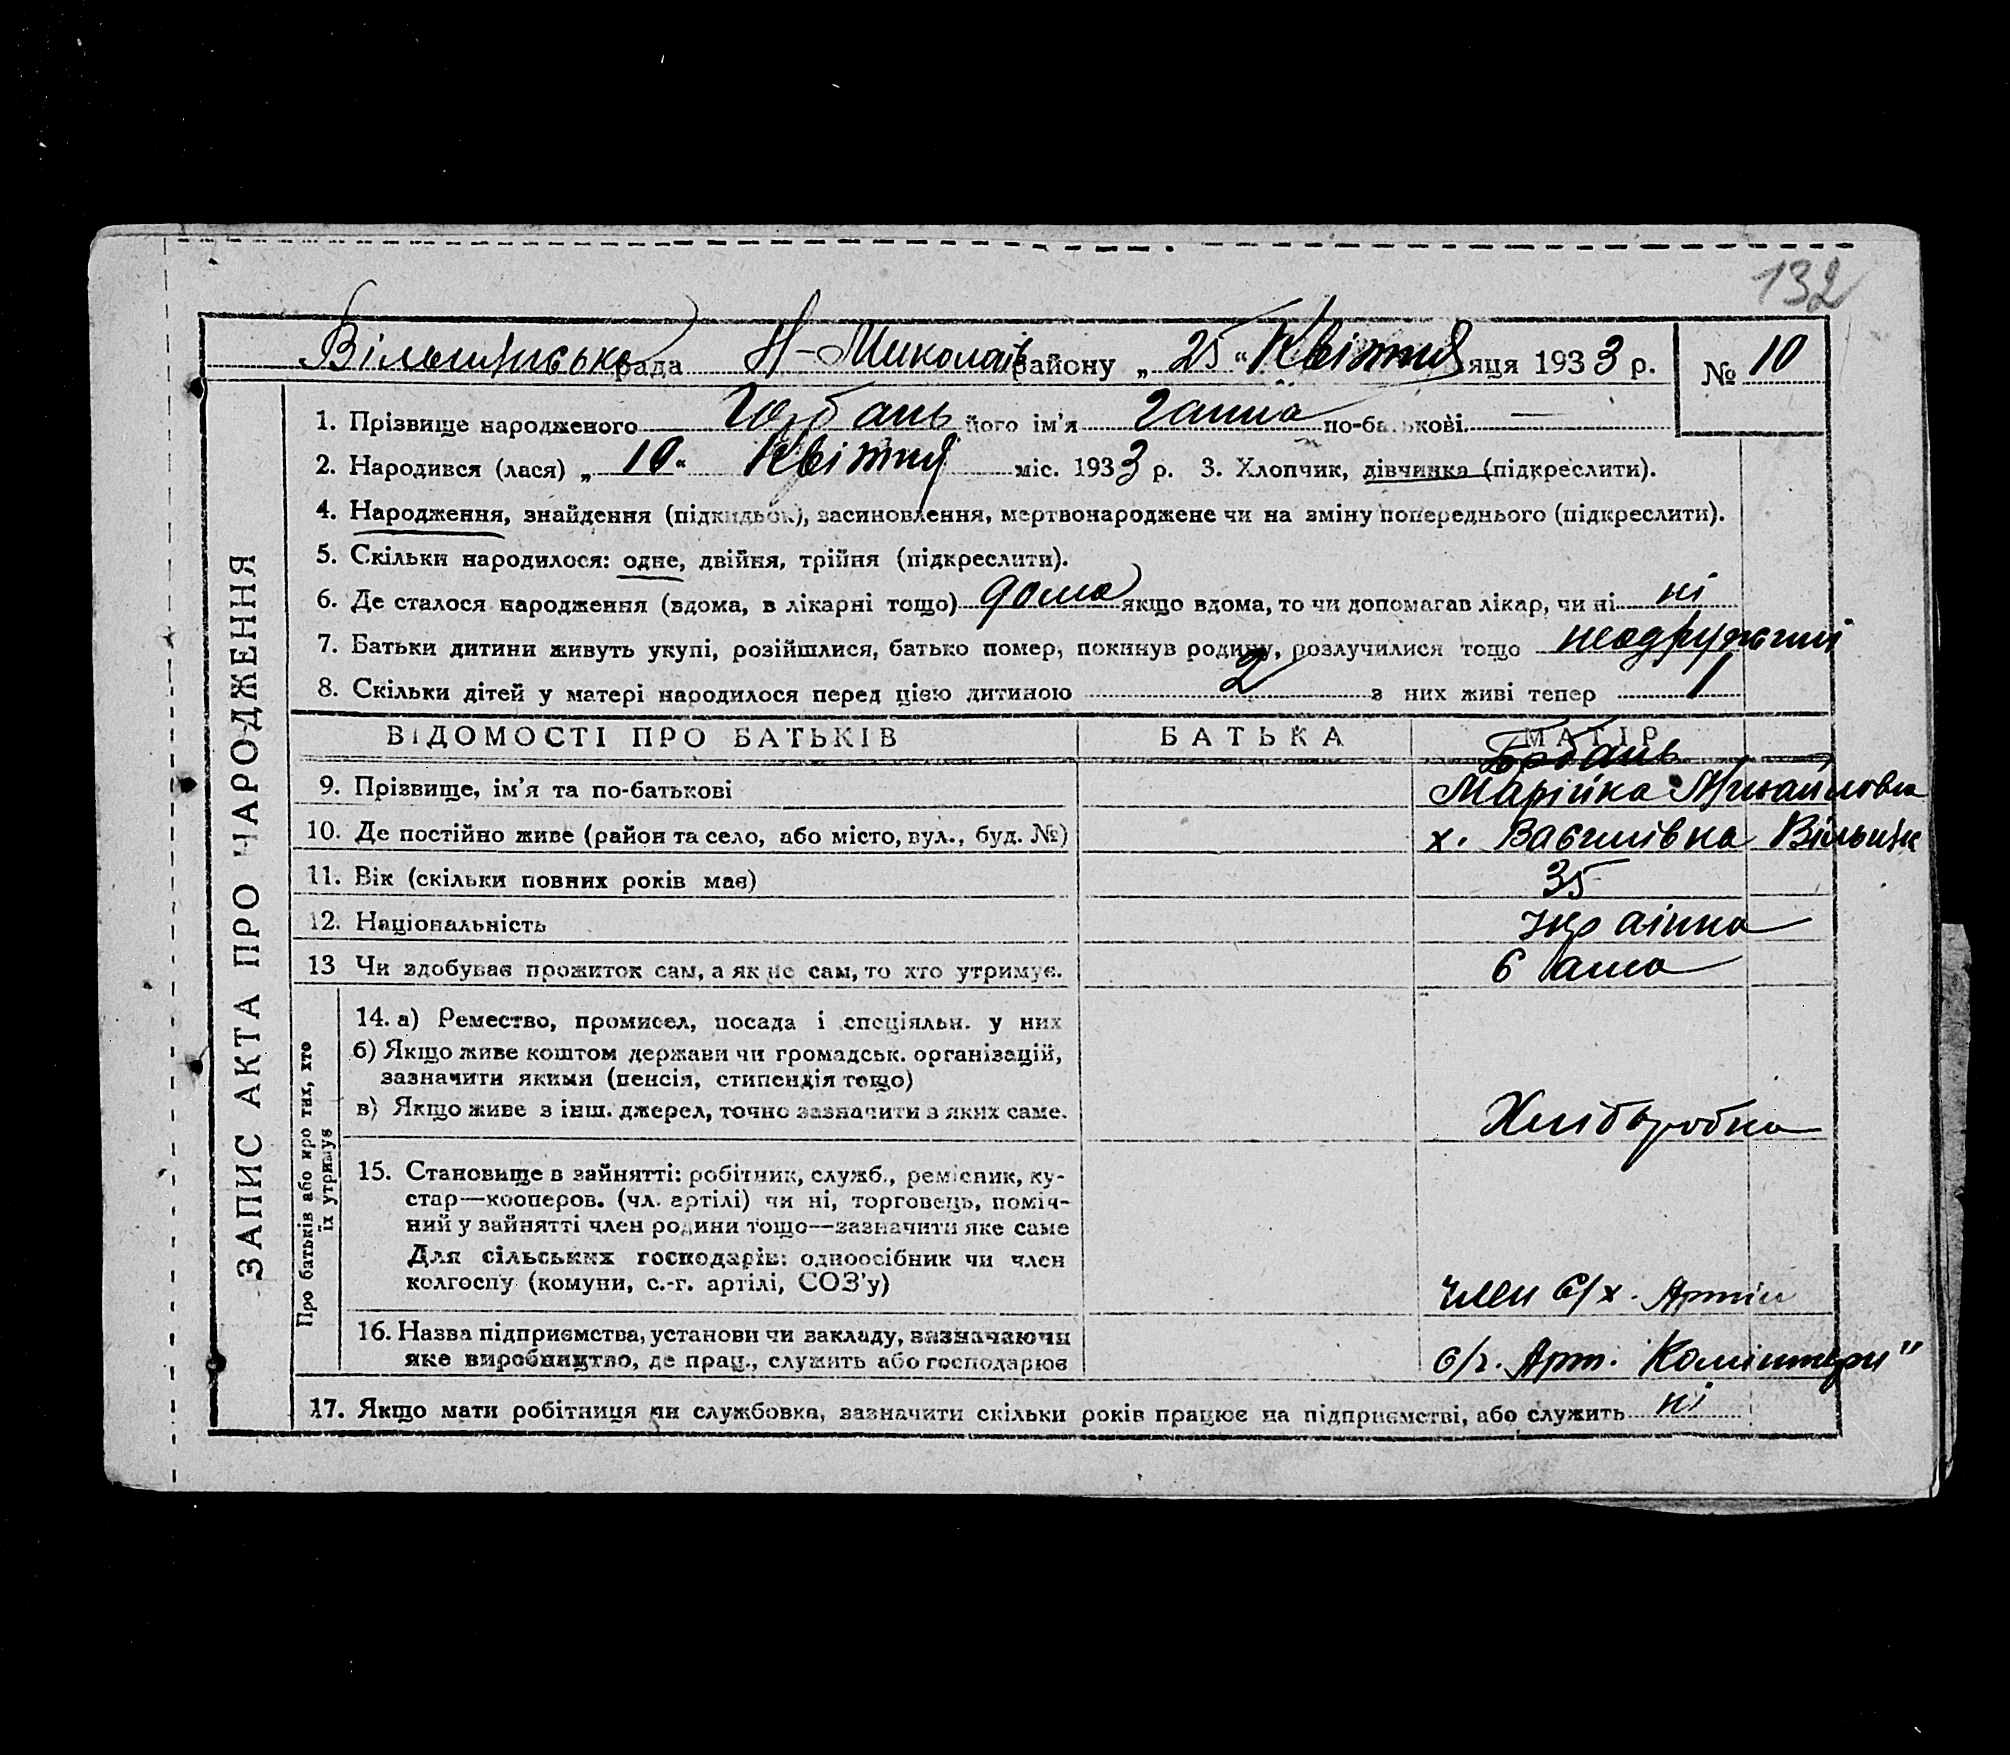 132
рада Н-Миколаїв району „25“ Квітня яця 1933 р. № 10
ЗАПИС АКТА ПРО НАРОДЖЕННЯ
1. Прізвище народженого Горбань його ім'я Ганна по-батькові —
2. Народився (лася) „10“ Квітня міс. 1933 р. 3. Хлопчик, дівчинка (підкреслити).
4. Народження, знайдення (підкидьок), засиновлення, мертвонароджене чи на зміну попереднього (підкреслити).
5. Скільки народилося: одне, двійня, трійня (підкреслити).
6. Де сталося народження (вдома, в лікарні тощо) дома якщо вдома, то чи допомагав лікар, чи ні ні
7. Батьки дитини живуть укупі, розійшлися, батько помер, покинув родину, розлучилися тощо
8. Скільки дітей у матері народилося перед цією дитиною 2 з них живі тепер 1
ВІДОМОСТІ ПРО БАТЬКІВ БАТЬКА МАТІР
9. Прізвище, ім'я та по-батькові Марійка
10. Де постійно живе (район та село, або місто, вул., буд. №) х.
11. Вік (скільки повних років має) 35
12. Національність Українка
13 Чи здобуває прожиток сам, а як не сам, то хто утримує. сама
Про батьків або про тих, хто їх утримує
14. а) Ремество, промисел, посада і спеціяльн. у них
б) Якщо живе коштом держави чи громадськ. організацій,
зазначити якими (пенсія, стипендія тощо)
в) Якщо живе з інш. джерел, точно зазначити з яких саме. Хліборобка
15. Становище в зайнятті: робітник, служб., ремісник, ку-
стар—кооперов. (чл. артілі) чи ні, торговець, поміч-
ний у зайнятті член родини тощо—зазначити яке саме
Для сільських господарів: одноосібник чи член
колгоспу (комуни, с.-г. артілі, СОЗ'у) член с/х. Артіл
16. Назва підприємства, установи чи закладу, визначаючи
яке виробництво, де прац., служить або господарює с/г. Арт. Комінтерн"
17. Якщо мати робітниця чи службовка, зазначити скільки років працює на підприємстві, або служить ні